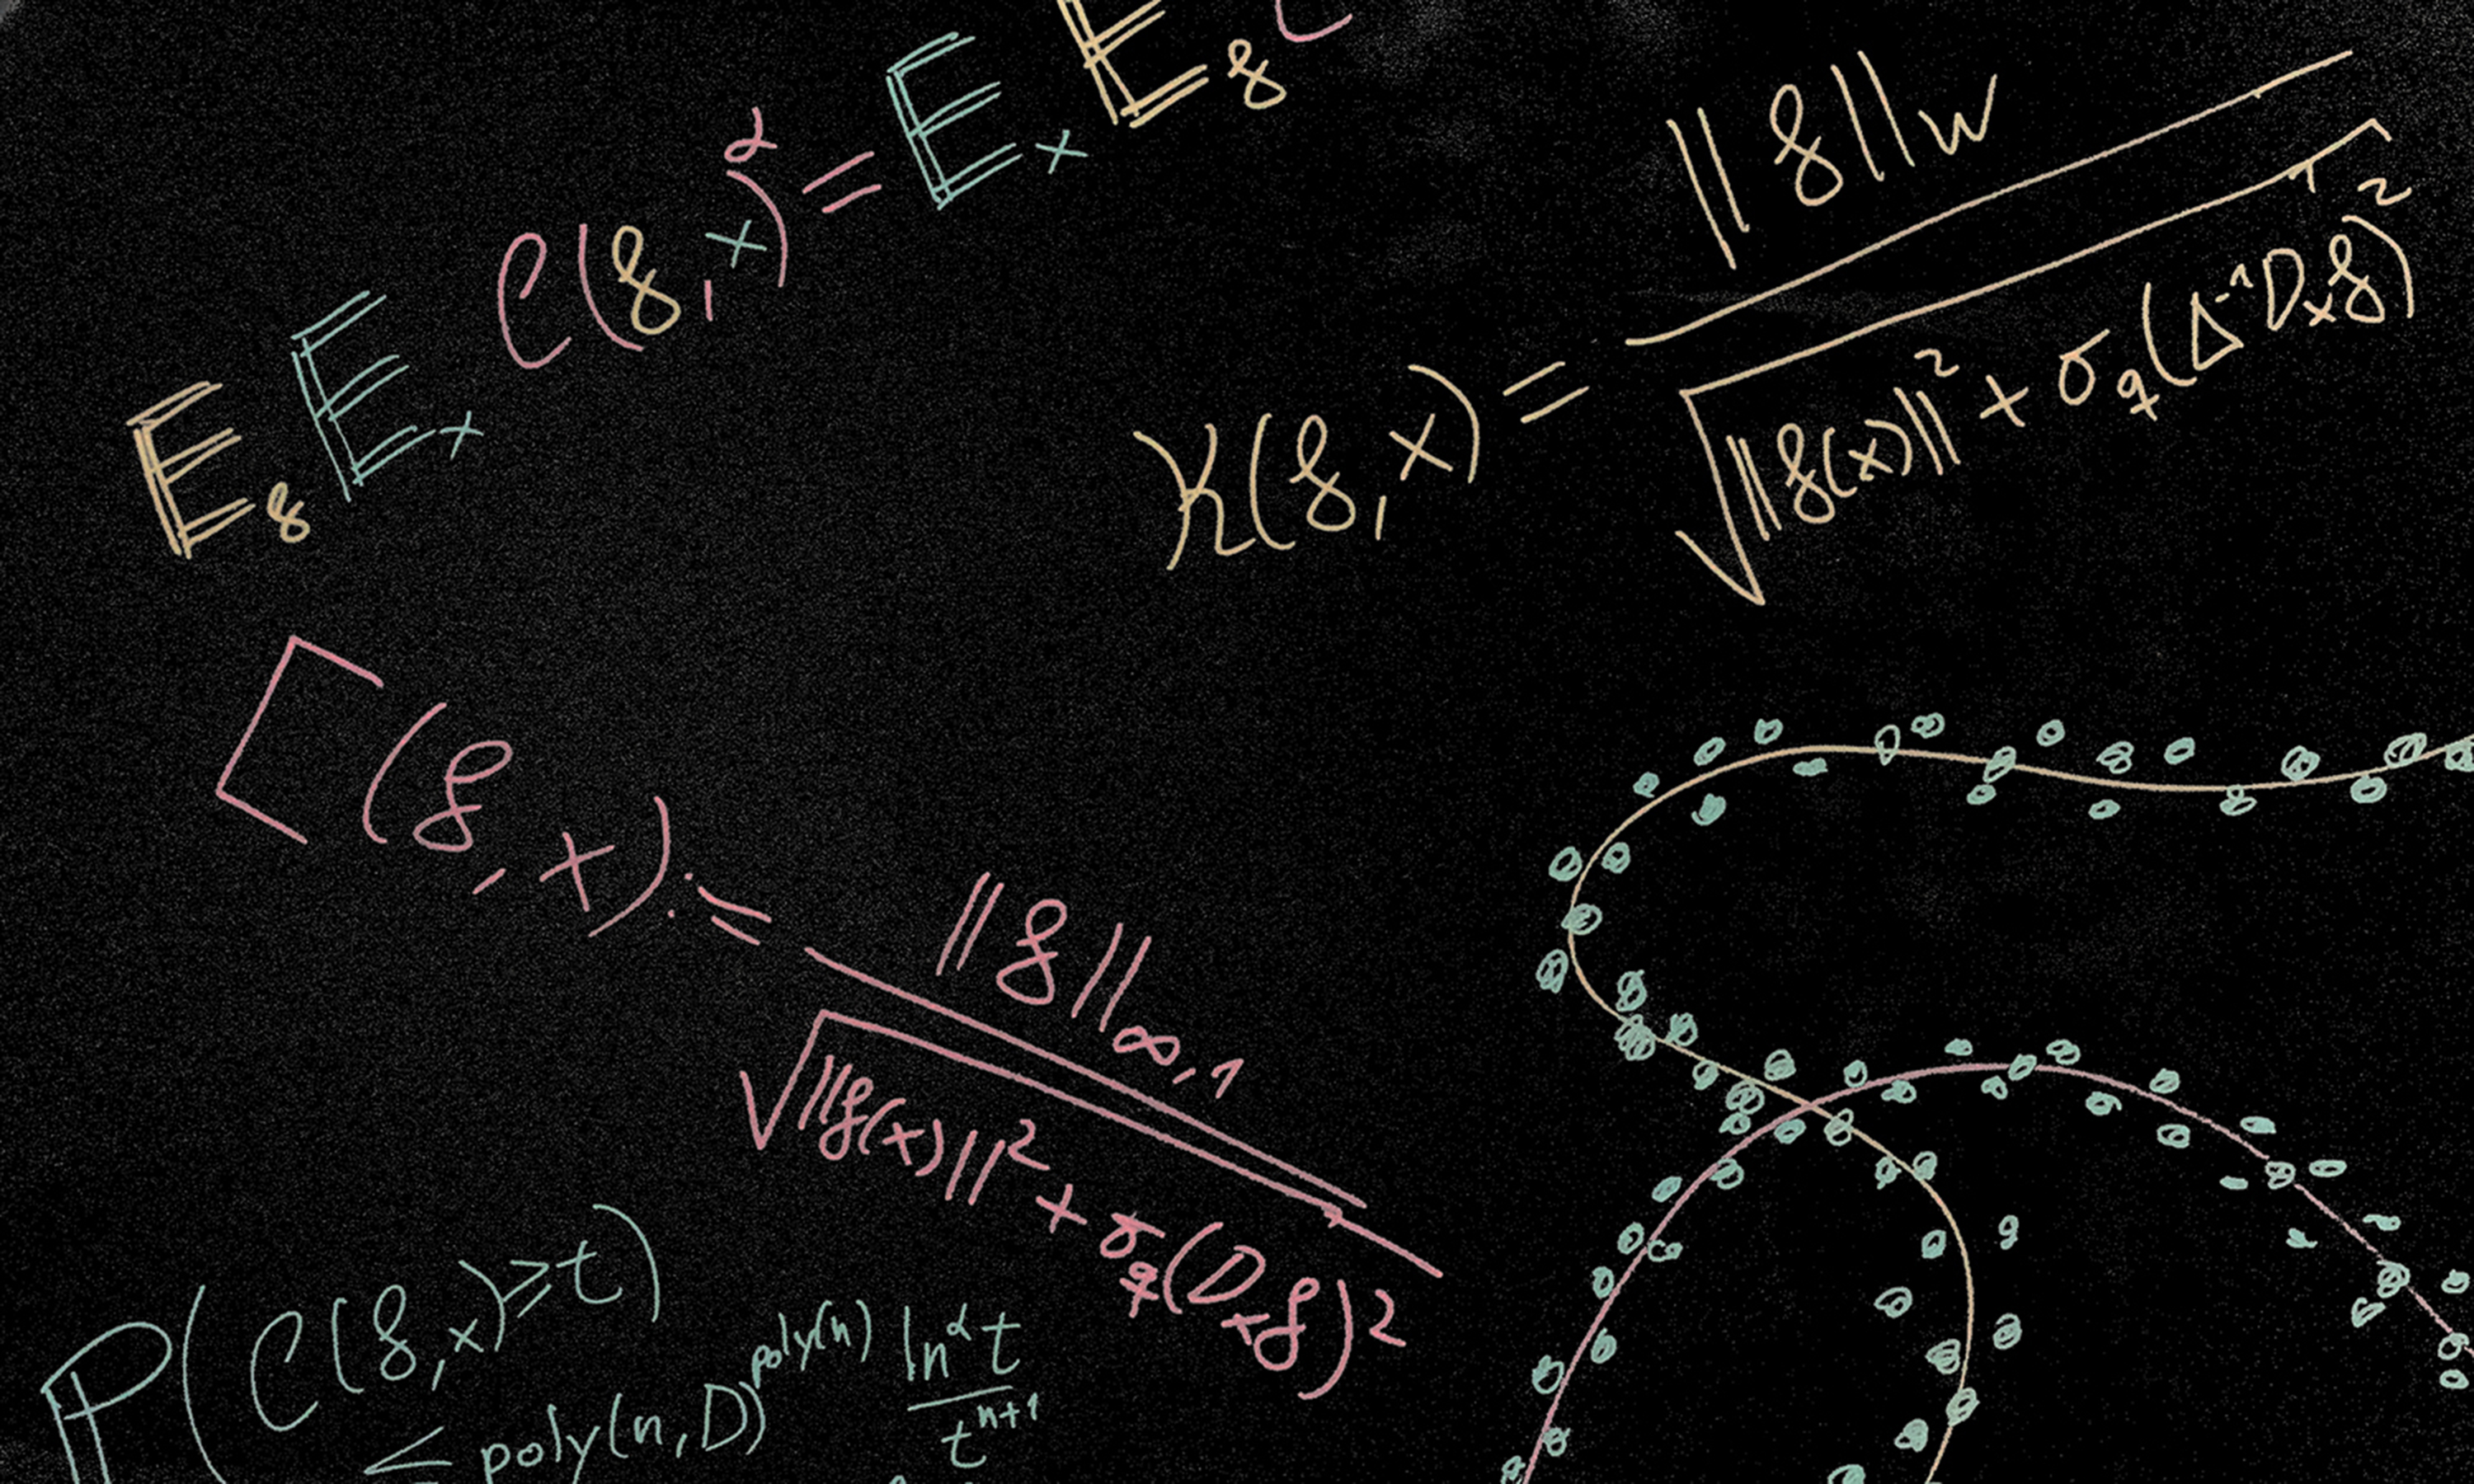 𝔼_f 𝔼_x C(f,x)^α = 𝔼_x 𝔼_f C
K(f,x) = ‖f‖_W / √(‖f(x)‖² + σ_q(Δ⁻¹D_xf)²)
C(f,x) := ‖f‖_∞,1 / √(‖f(x)‖² + σ_q(D_xf)²)
ℙ(C(f,x) ≥ t)
≤ poly(n,D)^poly(n) ln^α t / t^n+1